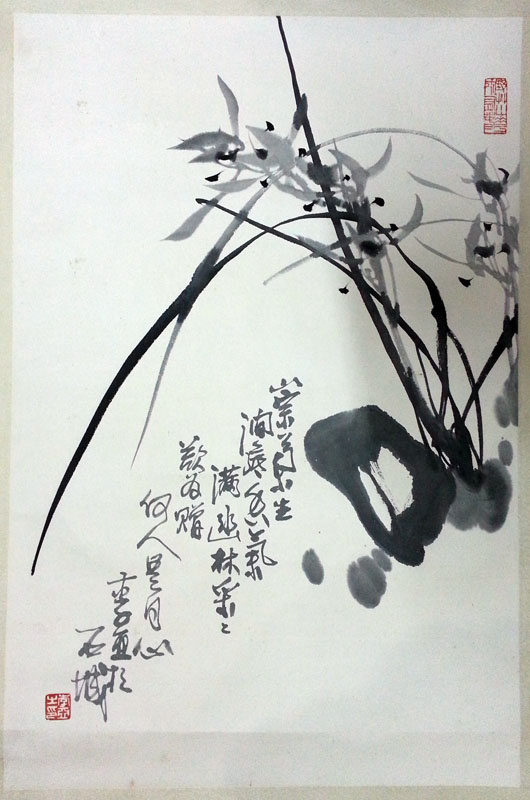 崇蘭生
澗底香氣
滿幽林采〻
欲為贈
何人是同心
李亞於
石城